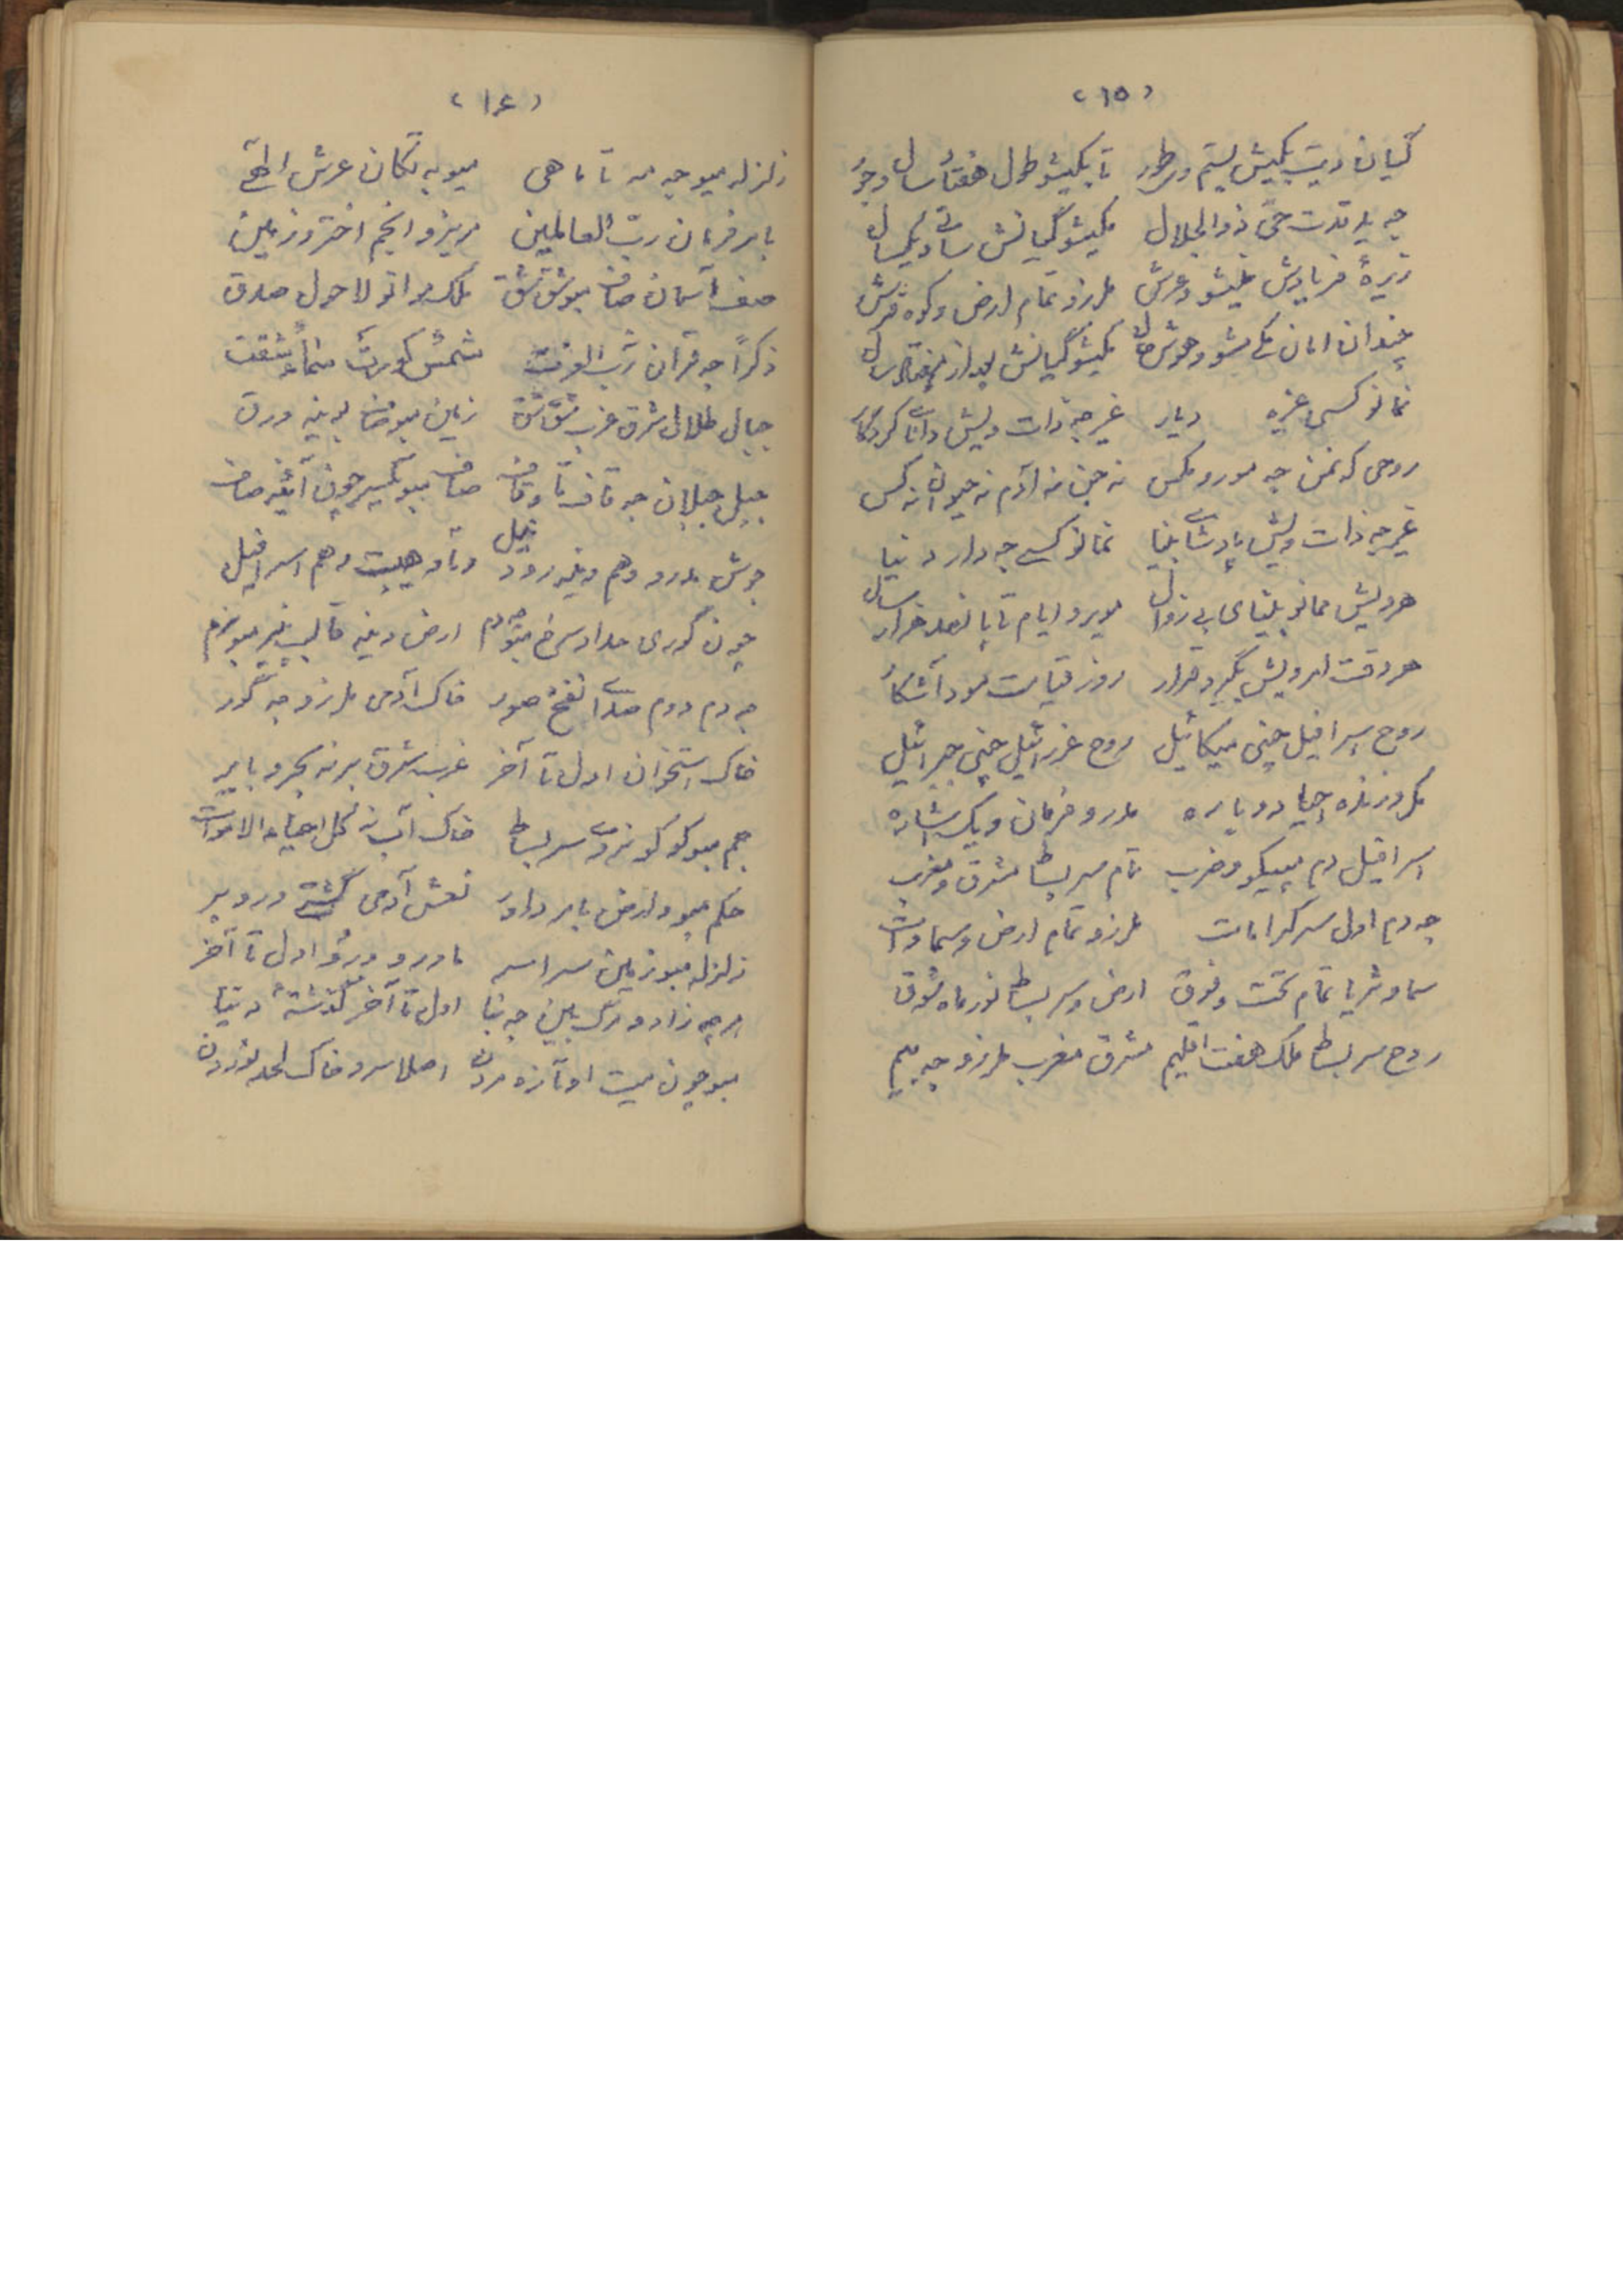 (۱۵)
گیان ویت بکیش بستم و طور تا بکیشو طول هفتاد سال و جور
جه ید قدرت حی ذوالجلال مکیشو گیانش ساتی و یکسال
زیره فریادش مشو و عرش ملرزو تمام ارض و کوه فرش
چندان امان مشو و هوش حال بکیشو گیانش بعد از هفتاد سال
نمانو کسی غیره دیار غیر جه ذات ویش دانای کردگار
روحی که نمن جه مور و مگس نه جن نه آدم نه حیوان نه کس
غیر جه ذات ویش پادشای بینا نمانو کسی جه دار دنیا
هر ویش ممانو بینای بی زوال مویرو ایام تا پانصد هزار سال
هر وقت امر ویش بگیرو قرار روز قیامت مود آشکار
روح اسرافیل چنی میکائیل روح عزرائیل چنی جبرائیل
مکرو زنده جیا دوباره مدرو فرمان و یک اشاره
اسرافیل دم میکو و ضرب تمام سر بساط مشرق و مغرب
جه دم اول سر کرامات ملرزو تمام ارض و سماوات
سما و ثریا تمام تحت و فوق ارض و سر بساط نور ماه فوق
روح سر بساط ملک هفت اقلیم مشرق مغرب ملرزو جه بیم
(۱۶)
زلزله میو جه مه تا ماهی میو به تکان عرش الهی
بابر فرمان رب العالمین مریزو انجم اختر و زمین
صف آسمان صاف مبو شق شق ملک موانو لا حول صدق
ذکراً جه قرآن رب العزت شمس کورت سماء شقت
جبال طلال شرق غرب شق شق زمین مبو صاف وینه ورق
جبل جبلان جه قاف تا و قاف صاف مبو یکسر چون آئینه صاف
جوش مدرو و هم وینه رود نیل و هیبت و هم اسرافیل
چون گوری حداد سرخ مبو جه دم ارض وینه قالب نیر مبو نرم
جه دم دوم صدای نفخ صور خاک آدمی ملرزو جه گور
خاک استخوان اول تا آخر غرب شرق برنه بحر و با بر
جم مبو کو کو نه روی سر بساط خاک آب نه گل احیاء الاموات
حکم مبو و ارض بابر داور نعش آدمی گشتی و رو بر
زلزله مبو زمین سراسر ماورو و رو اول تا آخر
هر چه زاد و مرگ بین جه بنا اول تا آخر گذشته دنیا
مبو چون میت او تازه مردن اصلا سر و خاک لحد نوردن